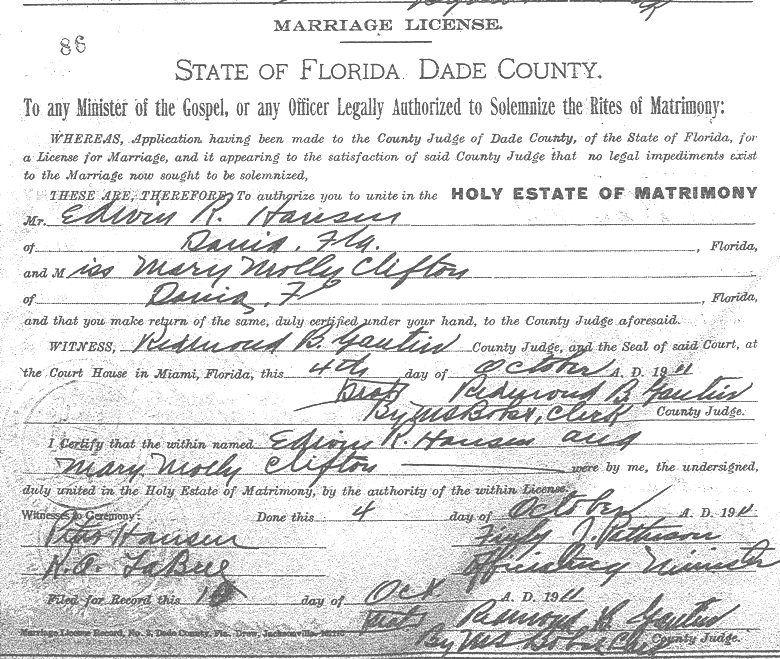 MARRIAGE LICENSE.
86
STATE OF FLORIDA DADE COUNTY.
To any Minister of the Gospel, or any Officer Legally Authorized to Solemnize the Rites of Matrimony:
WHEREAS, Application having been made to the County Judge of Dade County, of the State of Florida, for
a License for Marriage, and it appearing to the satisfaction of said County Judge that no legal impediments exist
to the Marriage now sought to be solemnized,
THESE ARE, THEREFORE, To authorize you to unite in the HOLY ESTATE OF MATRIMONY
Mr. Edwin R. Hansen
of Dania, Fla. , Florida,
and Miss Mary Molly Clifton
of Dania, F , Florida,
and that you make return of the same, duly certified under your hand, to the County Judge aforesaid.
WITNESS, Redmond B. Gautier County Judge, and the Seal of said Court, at
the Court House in Miami, Florida, this 4th day of October A. D. 1911
Redmond B Gautier
By Clerk County Judge.
I Certify that the within named Edwin R. Hansen and
Mary Molly Clifton were by me, the undersigned,
duly united in the Holy Estate of Matrimony, by the authority of the within License.
Witnesses to Ceremony: Done this 4 day of October A. D. 1911
Hansen J. Pattison
H. A. LaBree Officiating Minister
Filed for Record this 10 day of Oct A. D. 1911
Redmond B Gautier
By Clerk County Judge.
Marriage License Record, No. 2, Dade County, Fla. Drew, Jacksonville